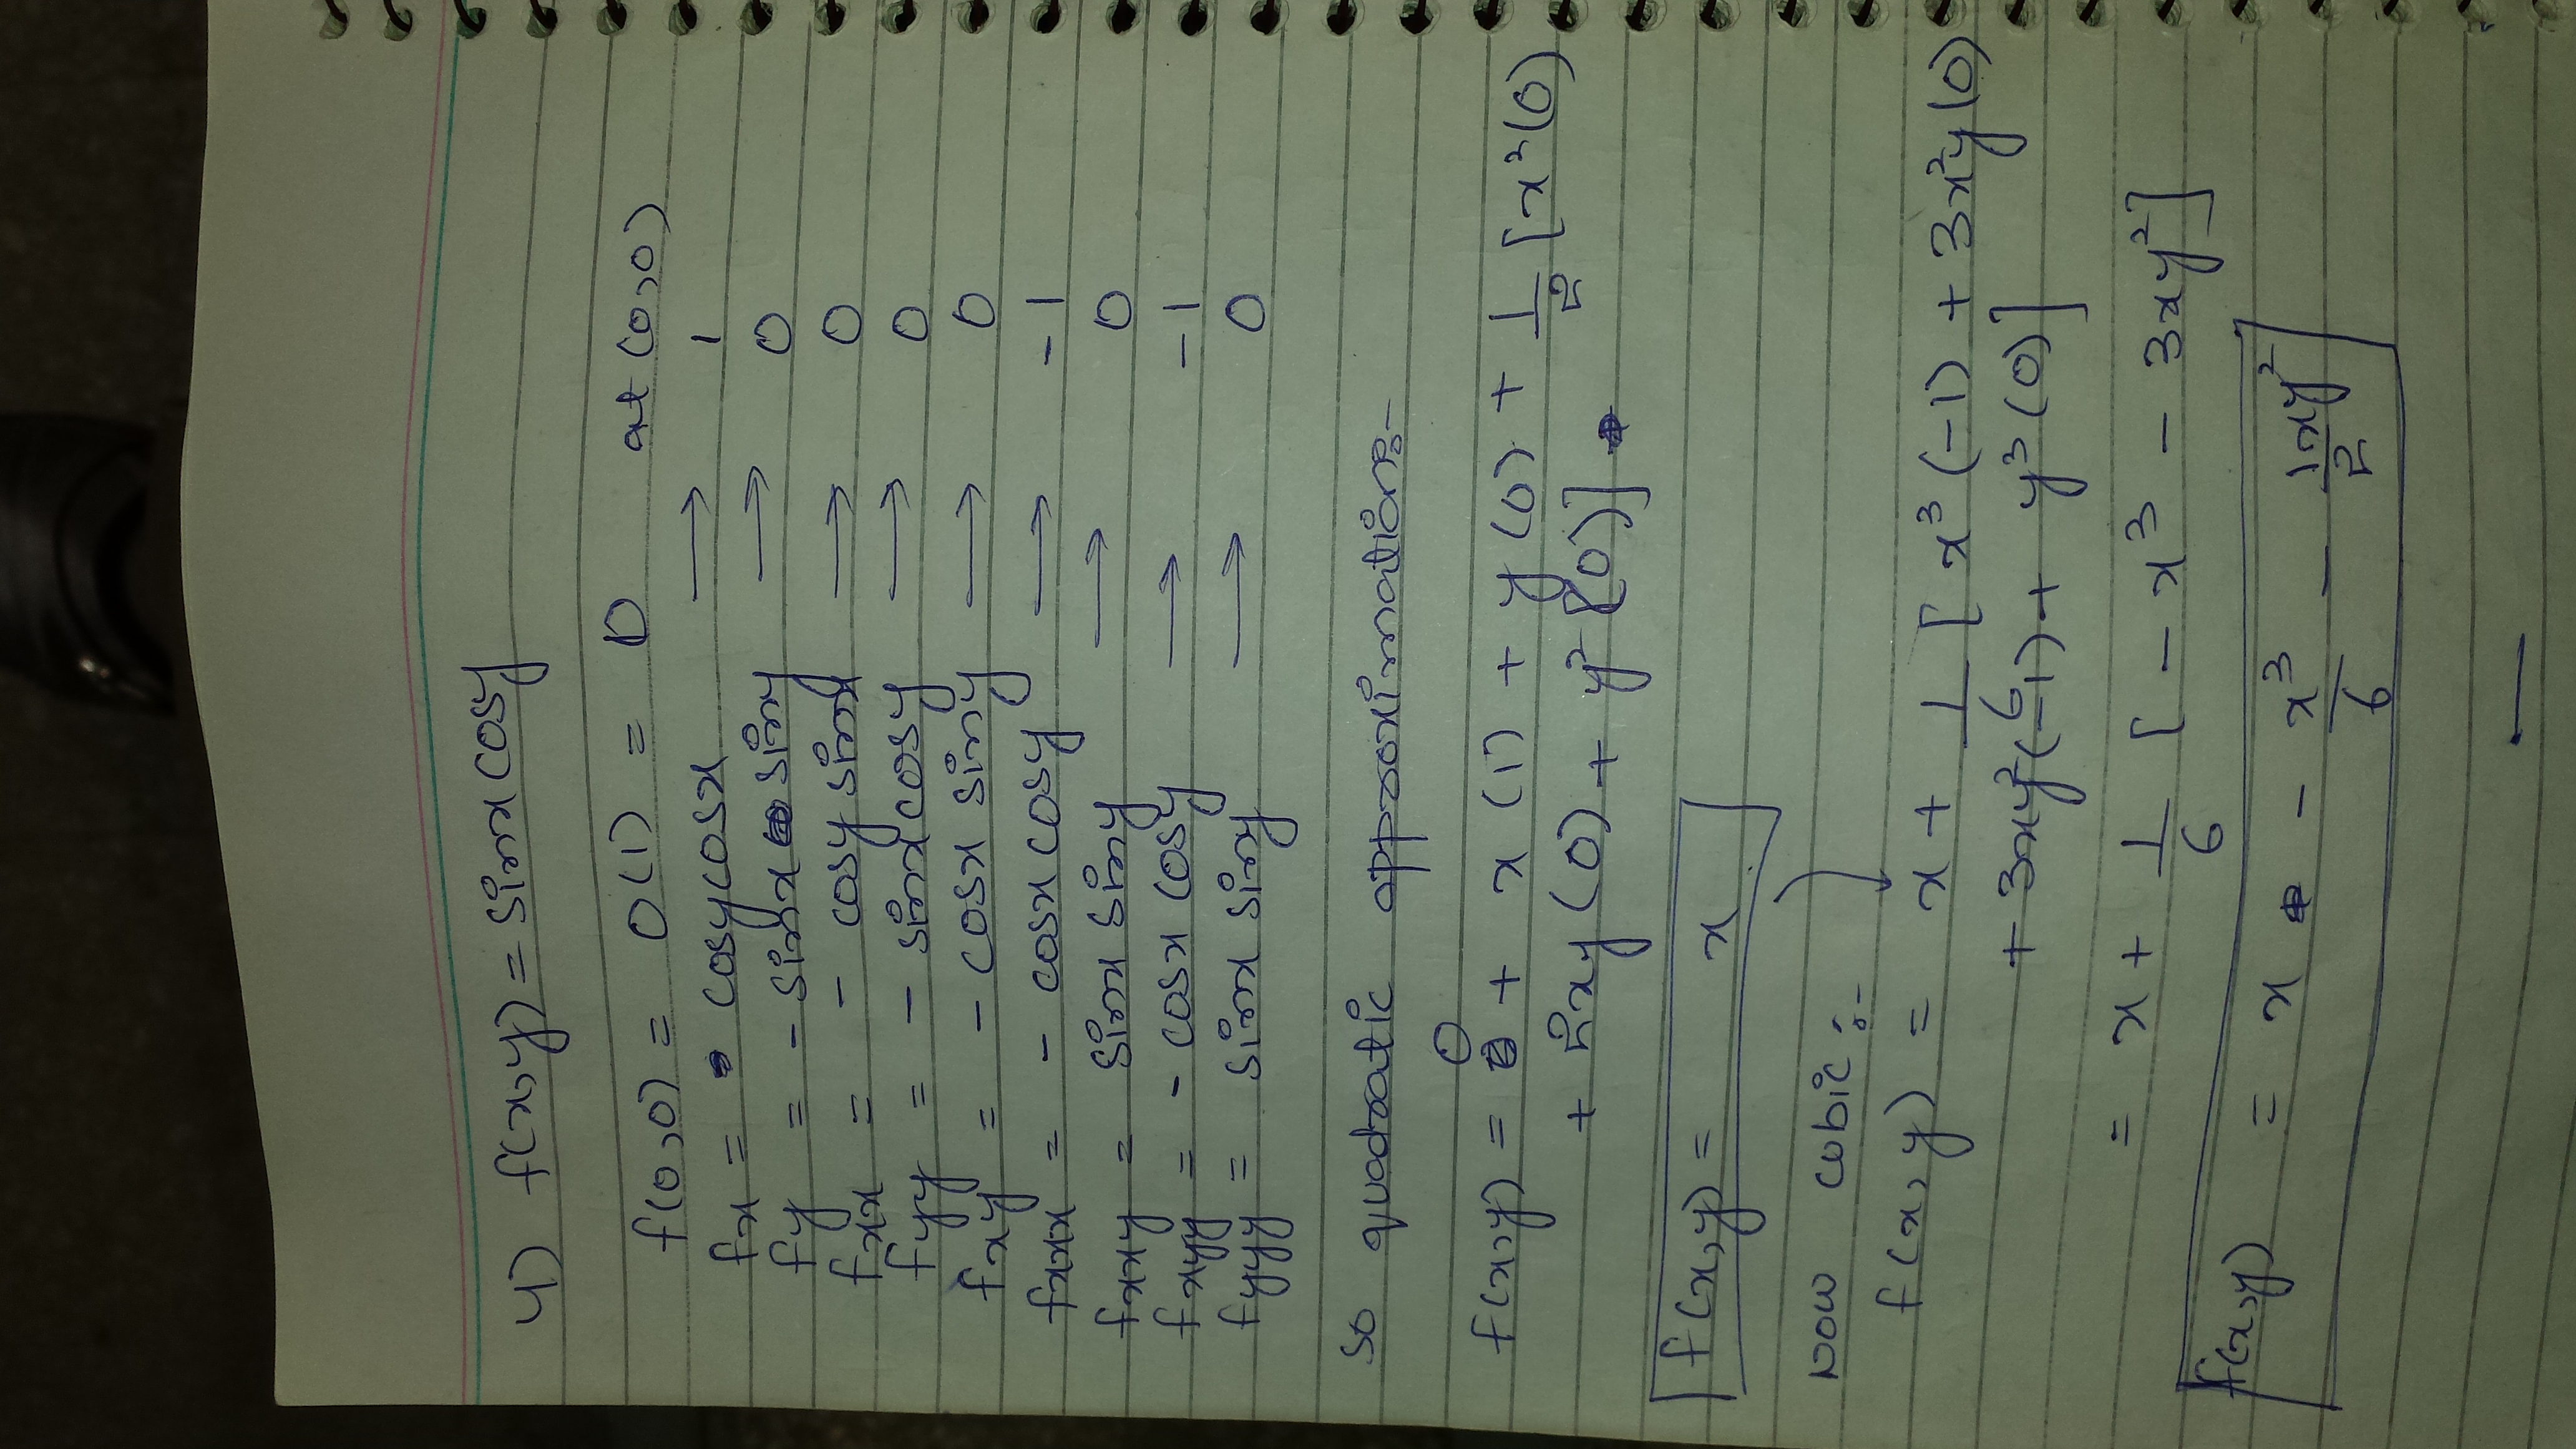 4) f(x,y) = sinx cosy
f(0,0) = 0(1) = 0 at (0,0)
fx = cosycosx → 1
fy = - sinx siny → 0
fxx = - cosy sinx → 0
fyy = - sinxcosy → 0
fxy = - cosx siny → 0
fxxx = - cosx cosy → -1
fxxy = sinx siny → 0
fxyy = - cosx cosy → -1
fyyy = sinx siny → 0
so quadratic approximation:-
f(x,y) = 0 + x (1) + y (0) + 1/2 [x²(0)
+ 2xy (0) + y² (0)]
f(x,y) = x
Now cubic :-
f(x,y) = x + 1/6 [x³ (-1) + 3x²y (0)
+ 3xy²(-1) + y³ (0)]
= x + 1/6 [ - x³ - 3xy²]
f(x,y) = x - x³/6 - 1xy²/2